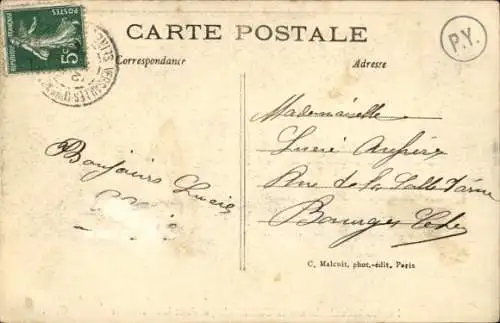 CARTE POSTALE
P.Y.
POSTES
REPUBLIQUE FRANÇAISE
5c
VERSAILLES
Correspondance
Adresse
Mademoiselle
Lucie
Rue de la Salle d'arme
Bourges
Bonjours Lucie
C. Malcuit, phot.-édit., Paris